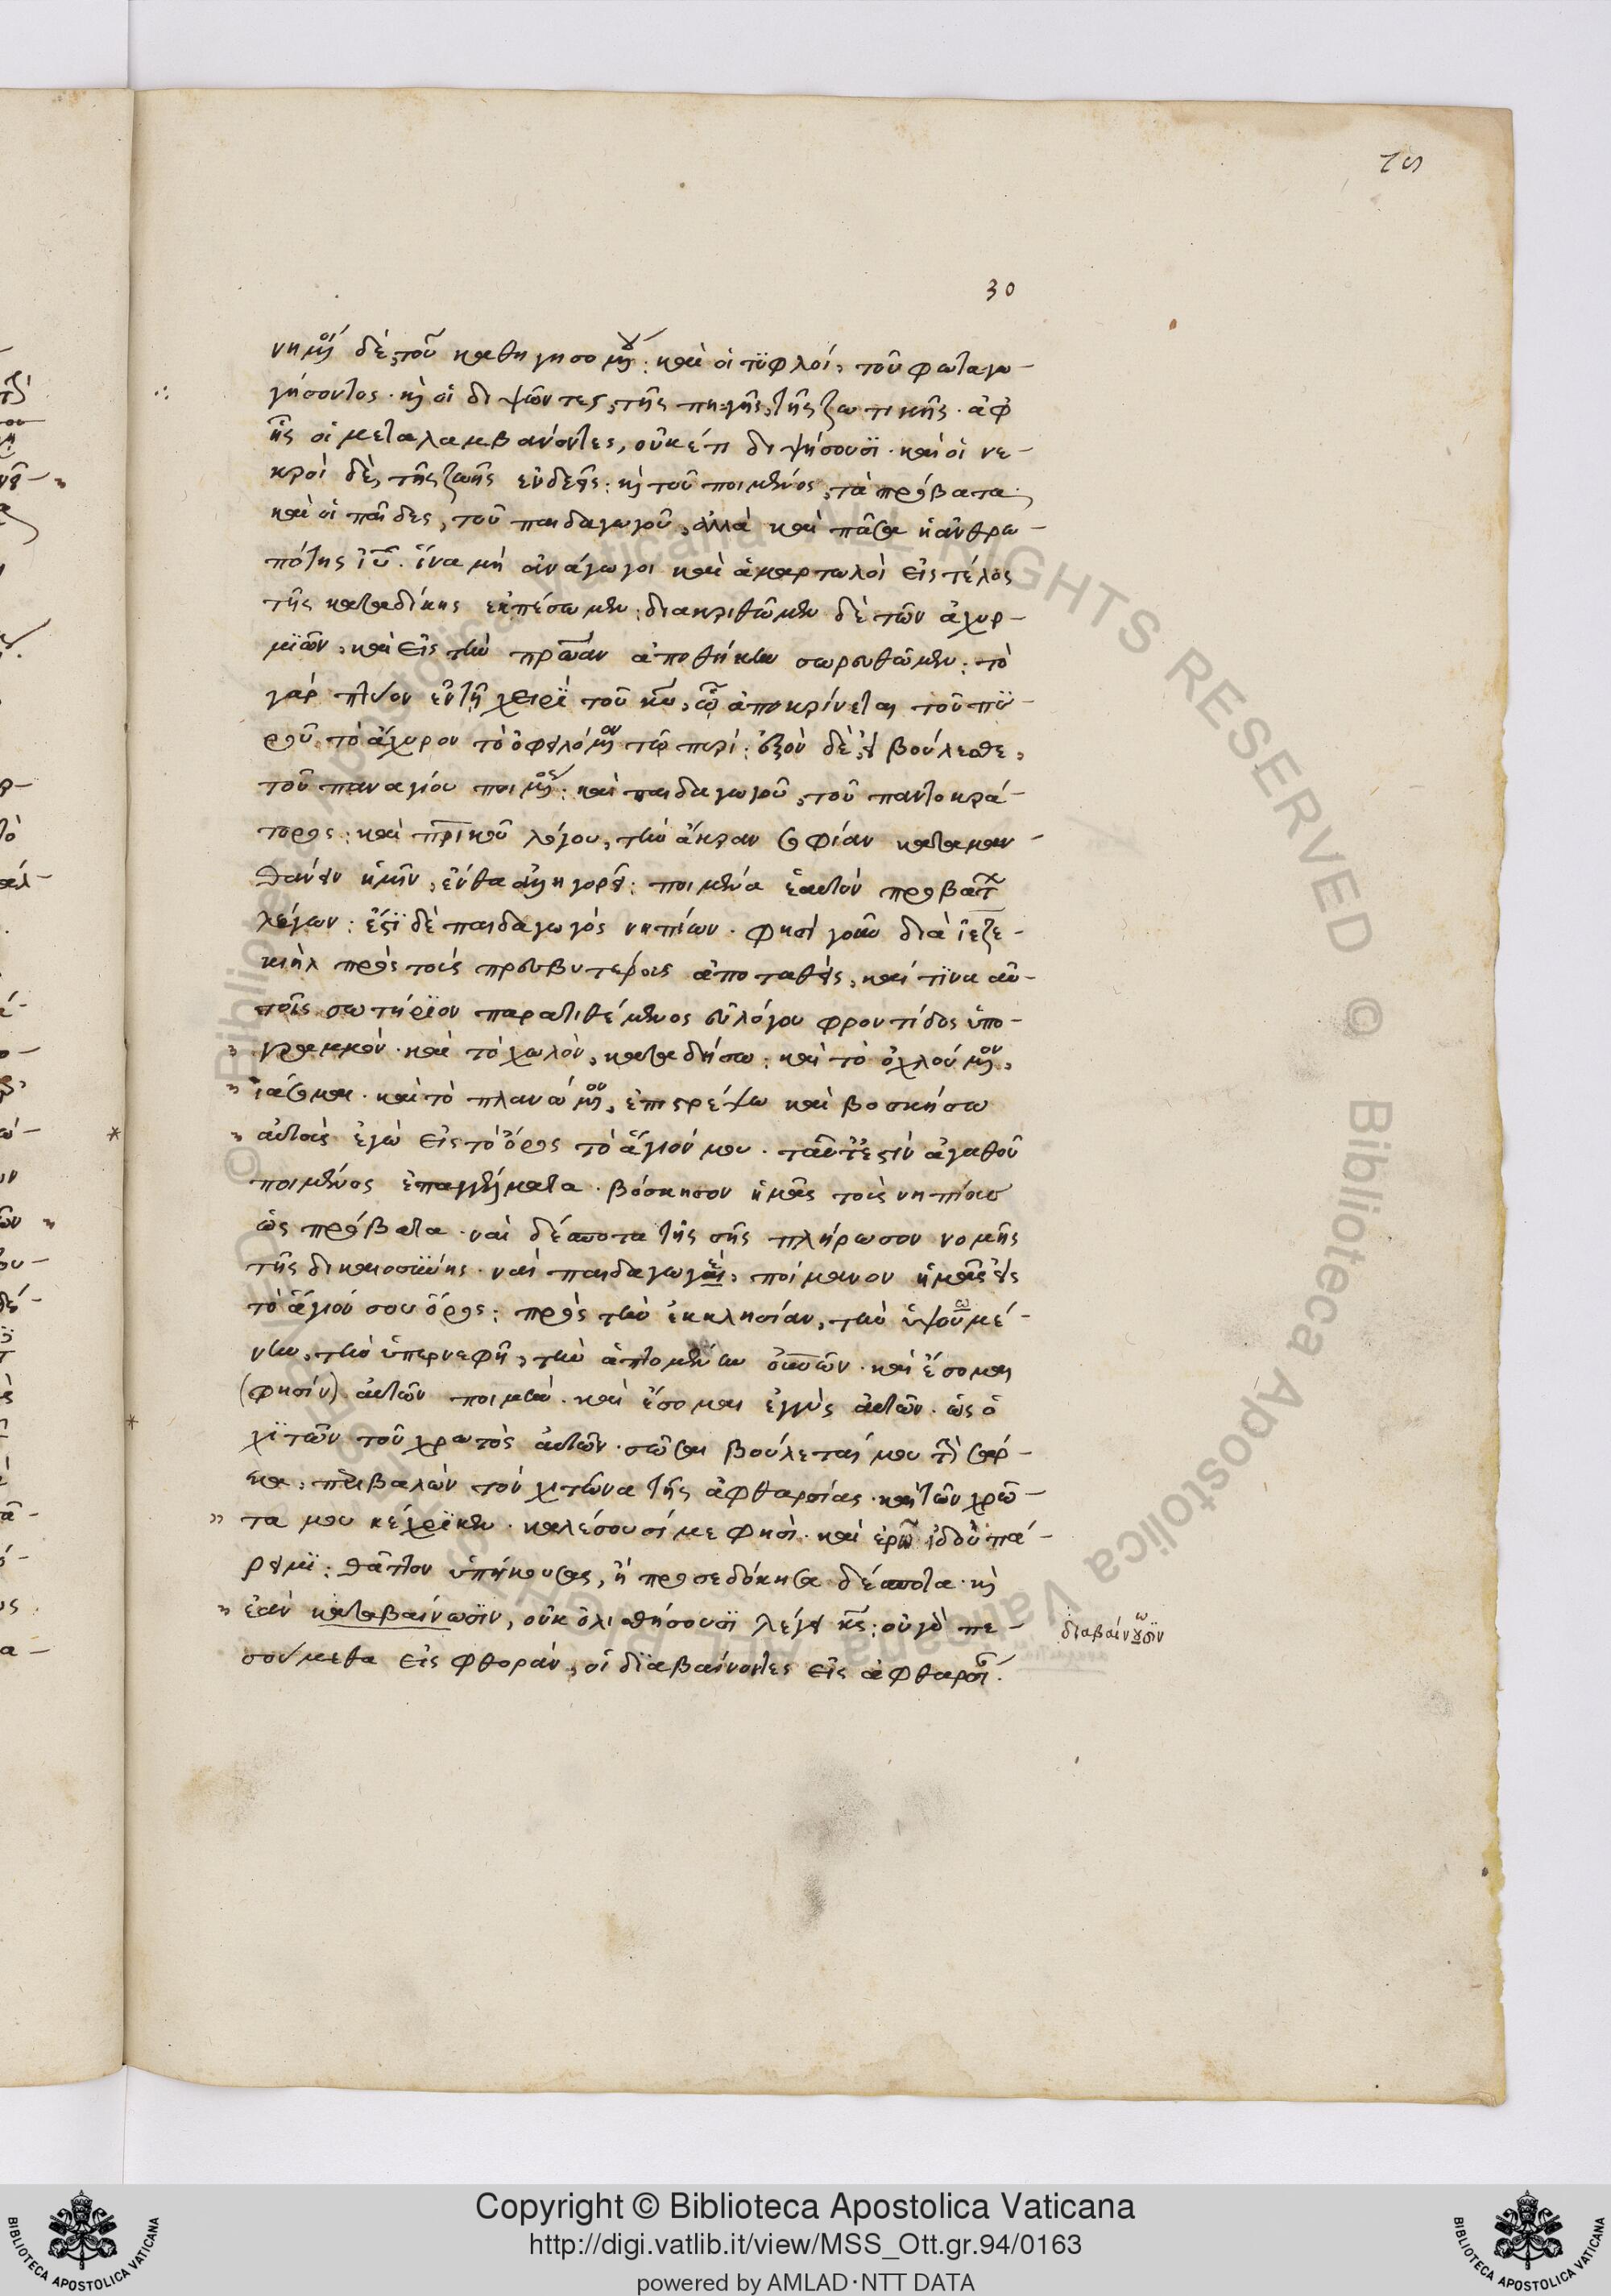 ις
30
νημένοι δὲ, τοῦ καθηγησομένου: καὶ οἱ τϋφλοί, τοῦ φωταγω-
γήσοντος. καὶ οἱ διψῶντες, τῆς πηγῆς, τῆς ζωτικῆς. ἀφ
ἧς οἱ μεταλαμβανόντες, οὐκέτι διψήσουσϊ. καὶ οἱ νε-
κροὶ δὲ, τῆς ζωῆς ἐνδεεῖς: καὶ τοῦ ποιμένος, τὰ πρόβατα.
καὶ οἱ παῖδες, τοῦ παιδαγωγοῦ, ἀλλὰ καὶ πᾶσα ἡ ἀνθρω-
πότης ἰῦ. ἵνα μὴ ἀνάγωγοι καὶ ἁμαρτωλοὶ εἰς τέλος
τῆς καταδίκης ἐκπέσωμεν: διακριθῶμεν δὲ τῶν ἀχυρ-
μϊῶν, καὶ εἰς τὴν πρώαν ἀποθήκην σωρευθῶμεν: τὸ
γὰρ πτύον ἐν τῇ χειρϊ τοῦ κυ, ᾧ ἀποκρίνεται τοῦ πϋ-
ροῦ, τὸ ἄχυρον τὸ ὀφειλόμενον τῷ πυρί: ἐξὸν δὲ, εἰ βούλεσθε,
τοῦ παναγίου ποιμένος: καὶ παιδαγωγοῦ, τοῦ παντοκρά-
τορος: καὶ πρικοῦ λόγου, τὴν ἄκραν σοφίαν καταμαν-
θάνειν ἡμῖν, ἔνθα ἀλληγορεῖ: ποιμένα ἑαυτὸν προβάτων
λέγων: ἔστϊ δὲ παιδαγωγὸς νηπίων. φησὶ γοῦν διὰ ἰεζε-
κιὴλ πρὸς τοὺς πρεσβυτέρους ἀποταθεὶς, καί τϊνα αὐ-
τοῖς σωτήρϊον παρατιθέμενος εὐλόγου φροντίδος ὑπο-
γραμμόν. καὶ τὸ χωλὸν, καταδήσω: καὶ τὸ ὀχλούμενον,
ἰάσομαι. καὶ τὸ πλανώμενον, ἐπιστρέψω καὶ βοσκήσω
αὐτοὺς ἐγὼ εἰς τὸ ὄρος τὸ ἅγιόν μου. ταῦτ' ἔστιν ἀγαθοῦ
ποιμένος ἐπαγγέλματα. βόσκησον ἡμᾶς τοὺς νηπίους
ὡς πρόβατα. ναὶ δέσποτα τῆς σῆς πλήρωσον νομῆς
τῆς δικαιοσϋνης. ναὶ παιδαγωγὲ, ποίμανον ἡμᾶς εἰς
τὸ ἅγιόν σου ὄρος: πρὸς τὴν ἐκκλησίαν, τὴν ὑψουμέ-
νην, τὴν ὑπερνεφῆ, τὴν ἁπτομένην οὐνῶν. καὶ ἔσομαι
(φησίν) αὐτῶν ποιμὴν. καὶ ἔσομαι ἐγγὺς αὐτῶν. ὡς ὁ
χϊτῶν τοῦ χρωτὸς αὐτῶν. σῶσαι βούλεταί μου τὴν σάρ-
κα, περιβαλὼν τὸν χιτῶνα τῆς ἀφθαρσίας. καὶ τὸν χρῶ-
τα μου κέχρϊκεν. καλέσουσί με φησὶ. καὶ ἐρῶ ἰδοὺ πά-
ρειμϊ: θᾶττον ὑπήκουσας, ἢ προσεδόκησα δέσποτα. καὶ
ἐὰν καταβαίνωσϊν, οὐκ ὀλισθήσουσϊ λέγει κς: οὐ γὰρ πε-
σούμεθα εἰς φθορὰν, οἱ δϊαβαίνοντες εἰς ἀφθαρσί.
διαβαίνουσϊν
Copyright © Biblioteca Apostolica Vaticana
http://digi.vatlib.it/view/MSS_Ott.gr.94/0163
powered by AMLAD·NTT DATA